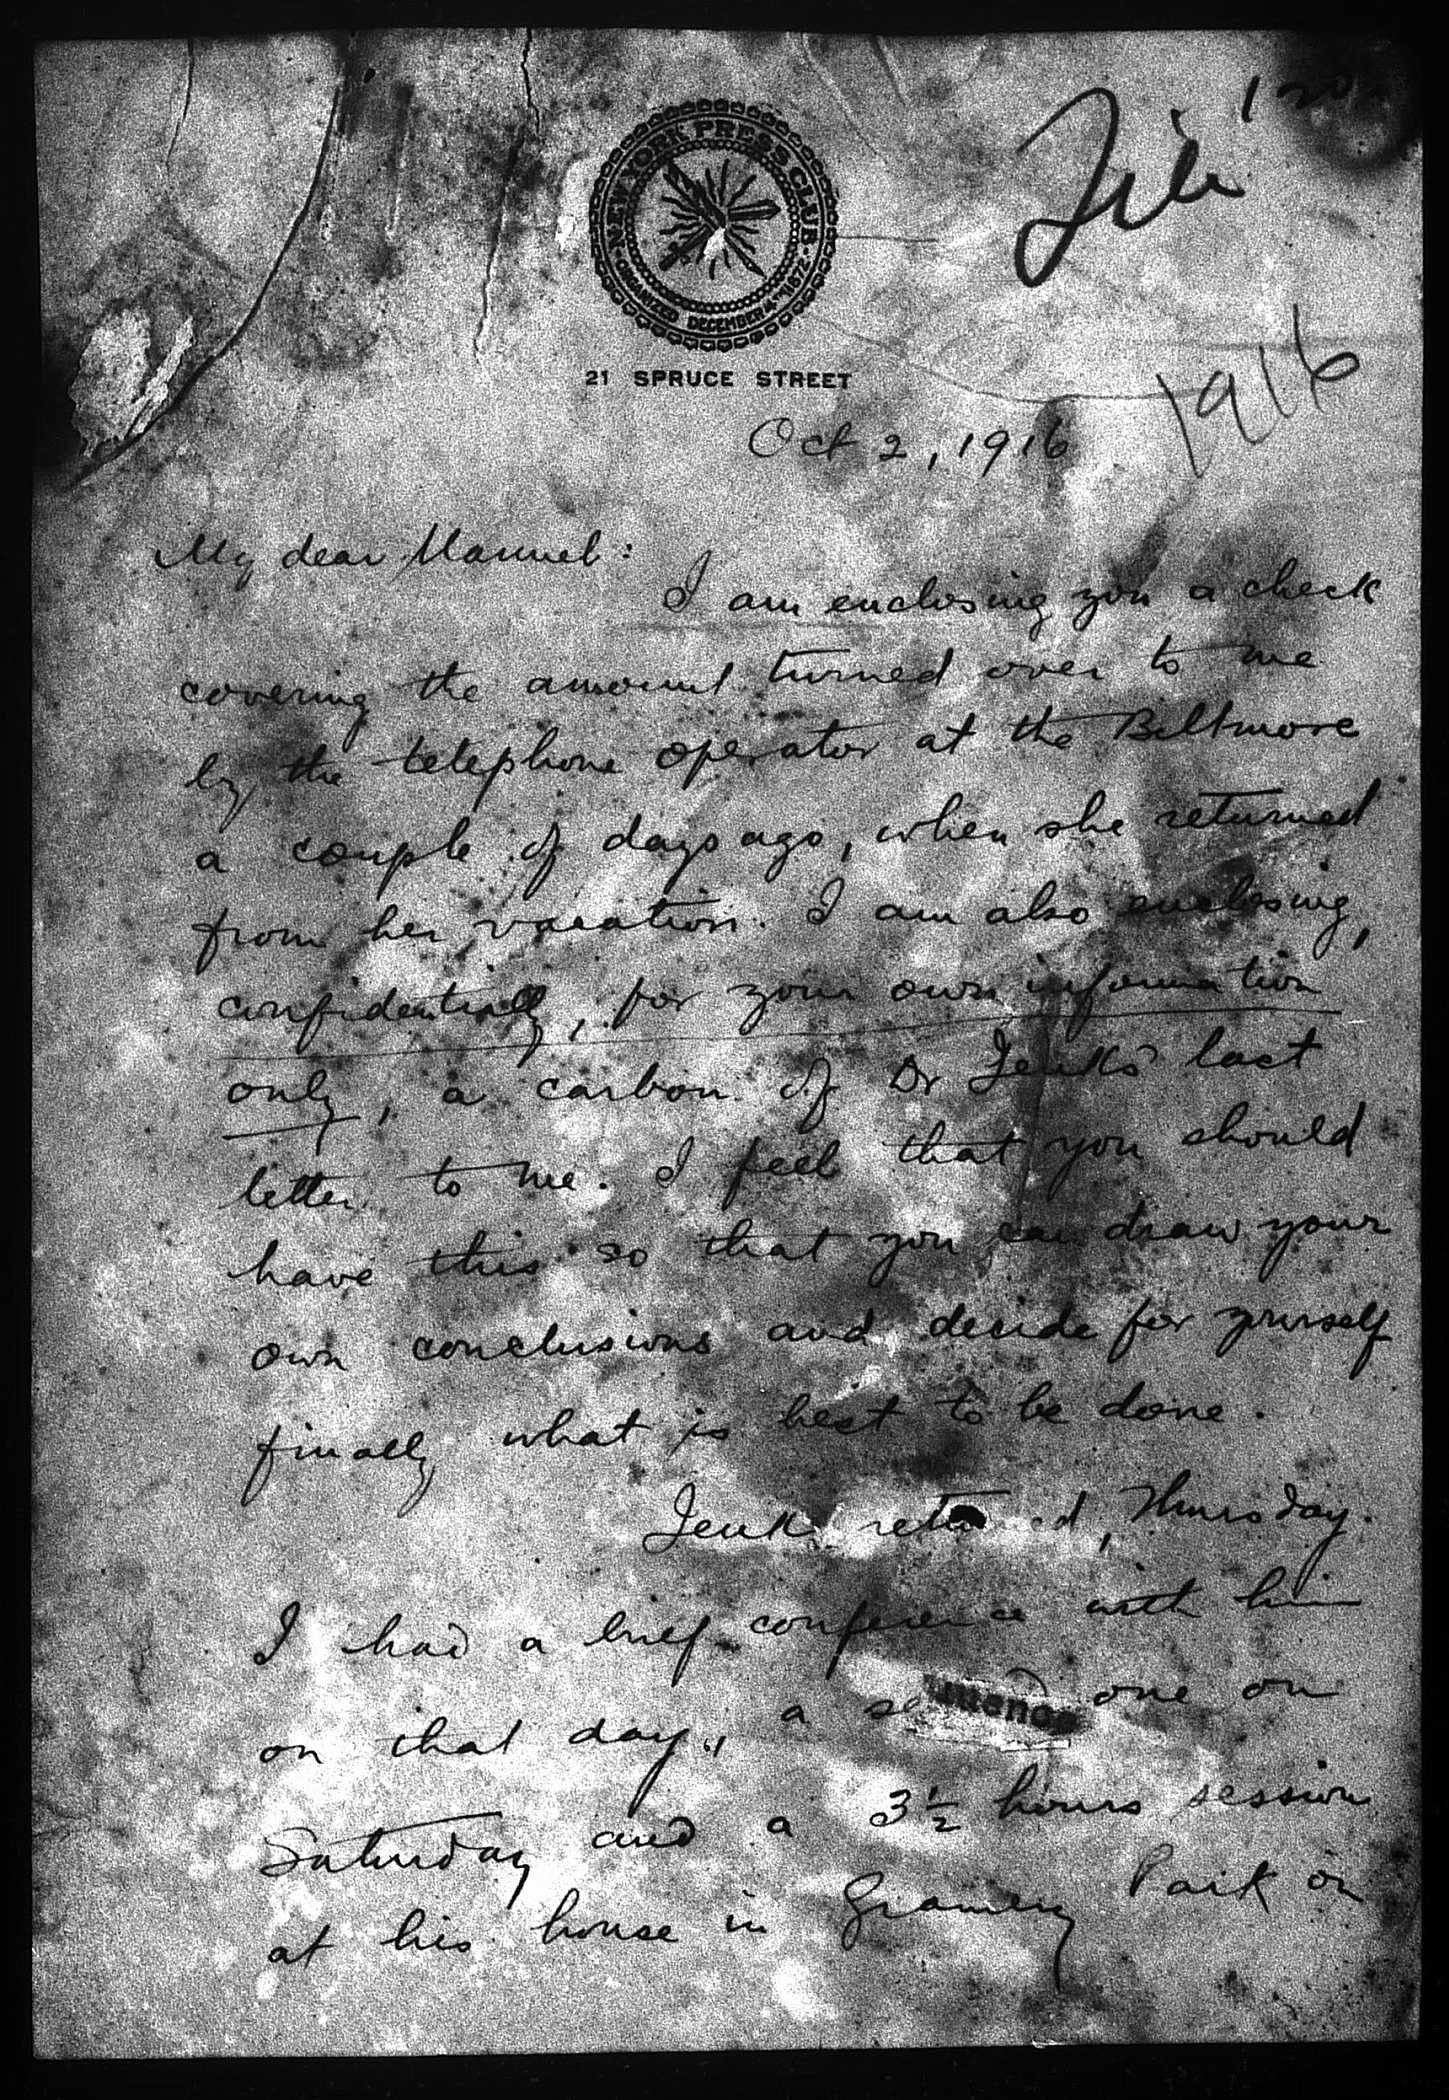 NEW YORK PRESS CLUB
ORGANIZED DECEMBER 4TH 1872
21 SPRUCE STREET
File
1916
Oct 2, 1916
My dear Manuel:
I am enclosing you a check
covering the amount turned over to me
by the telephone operator at the Biltmore
a couple of days ago, when she returned
from her vacation. I am also enclosing,
confidentially, for your own information
only, a carbon of Dr Jenks' last
letter to me. I feel that you should
have this so that you can draw your
own conclusions and decide for yourself
finally what is best to be done.
Jenks returned, Thursday.
I had a brief conference with him
on that day, a second one on
Saturday and a 3½ hours session
at his house in Gramercy Park on